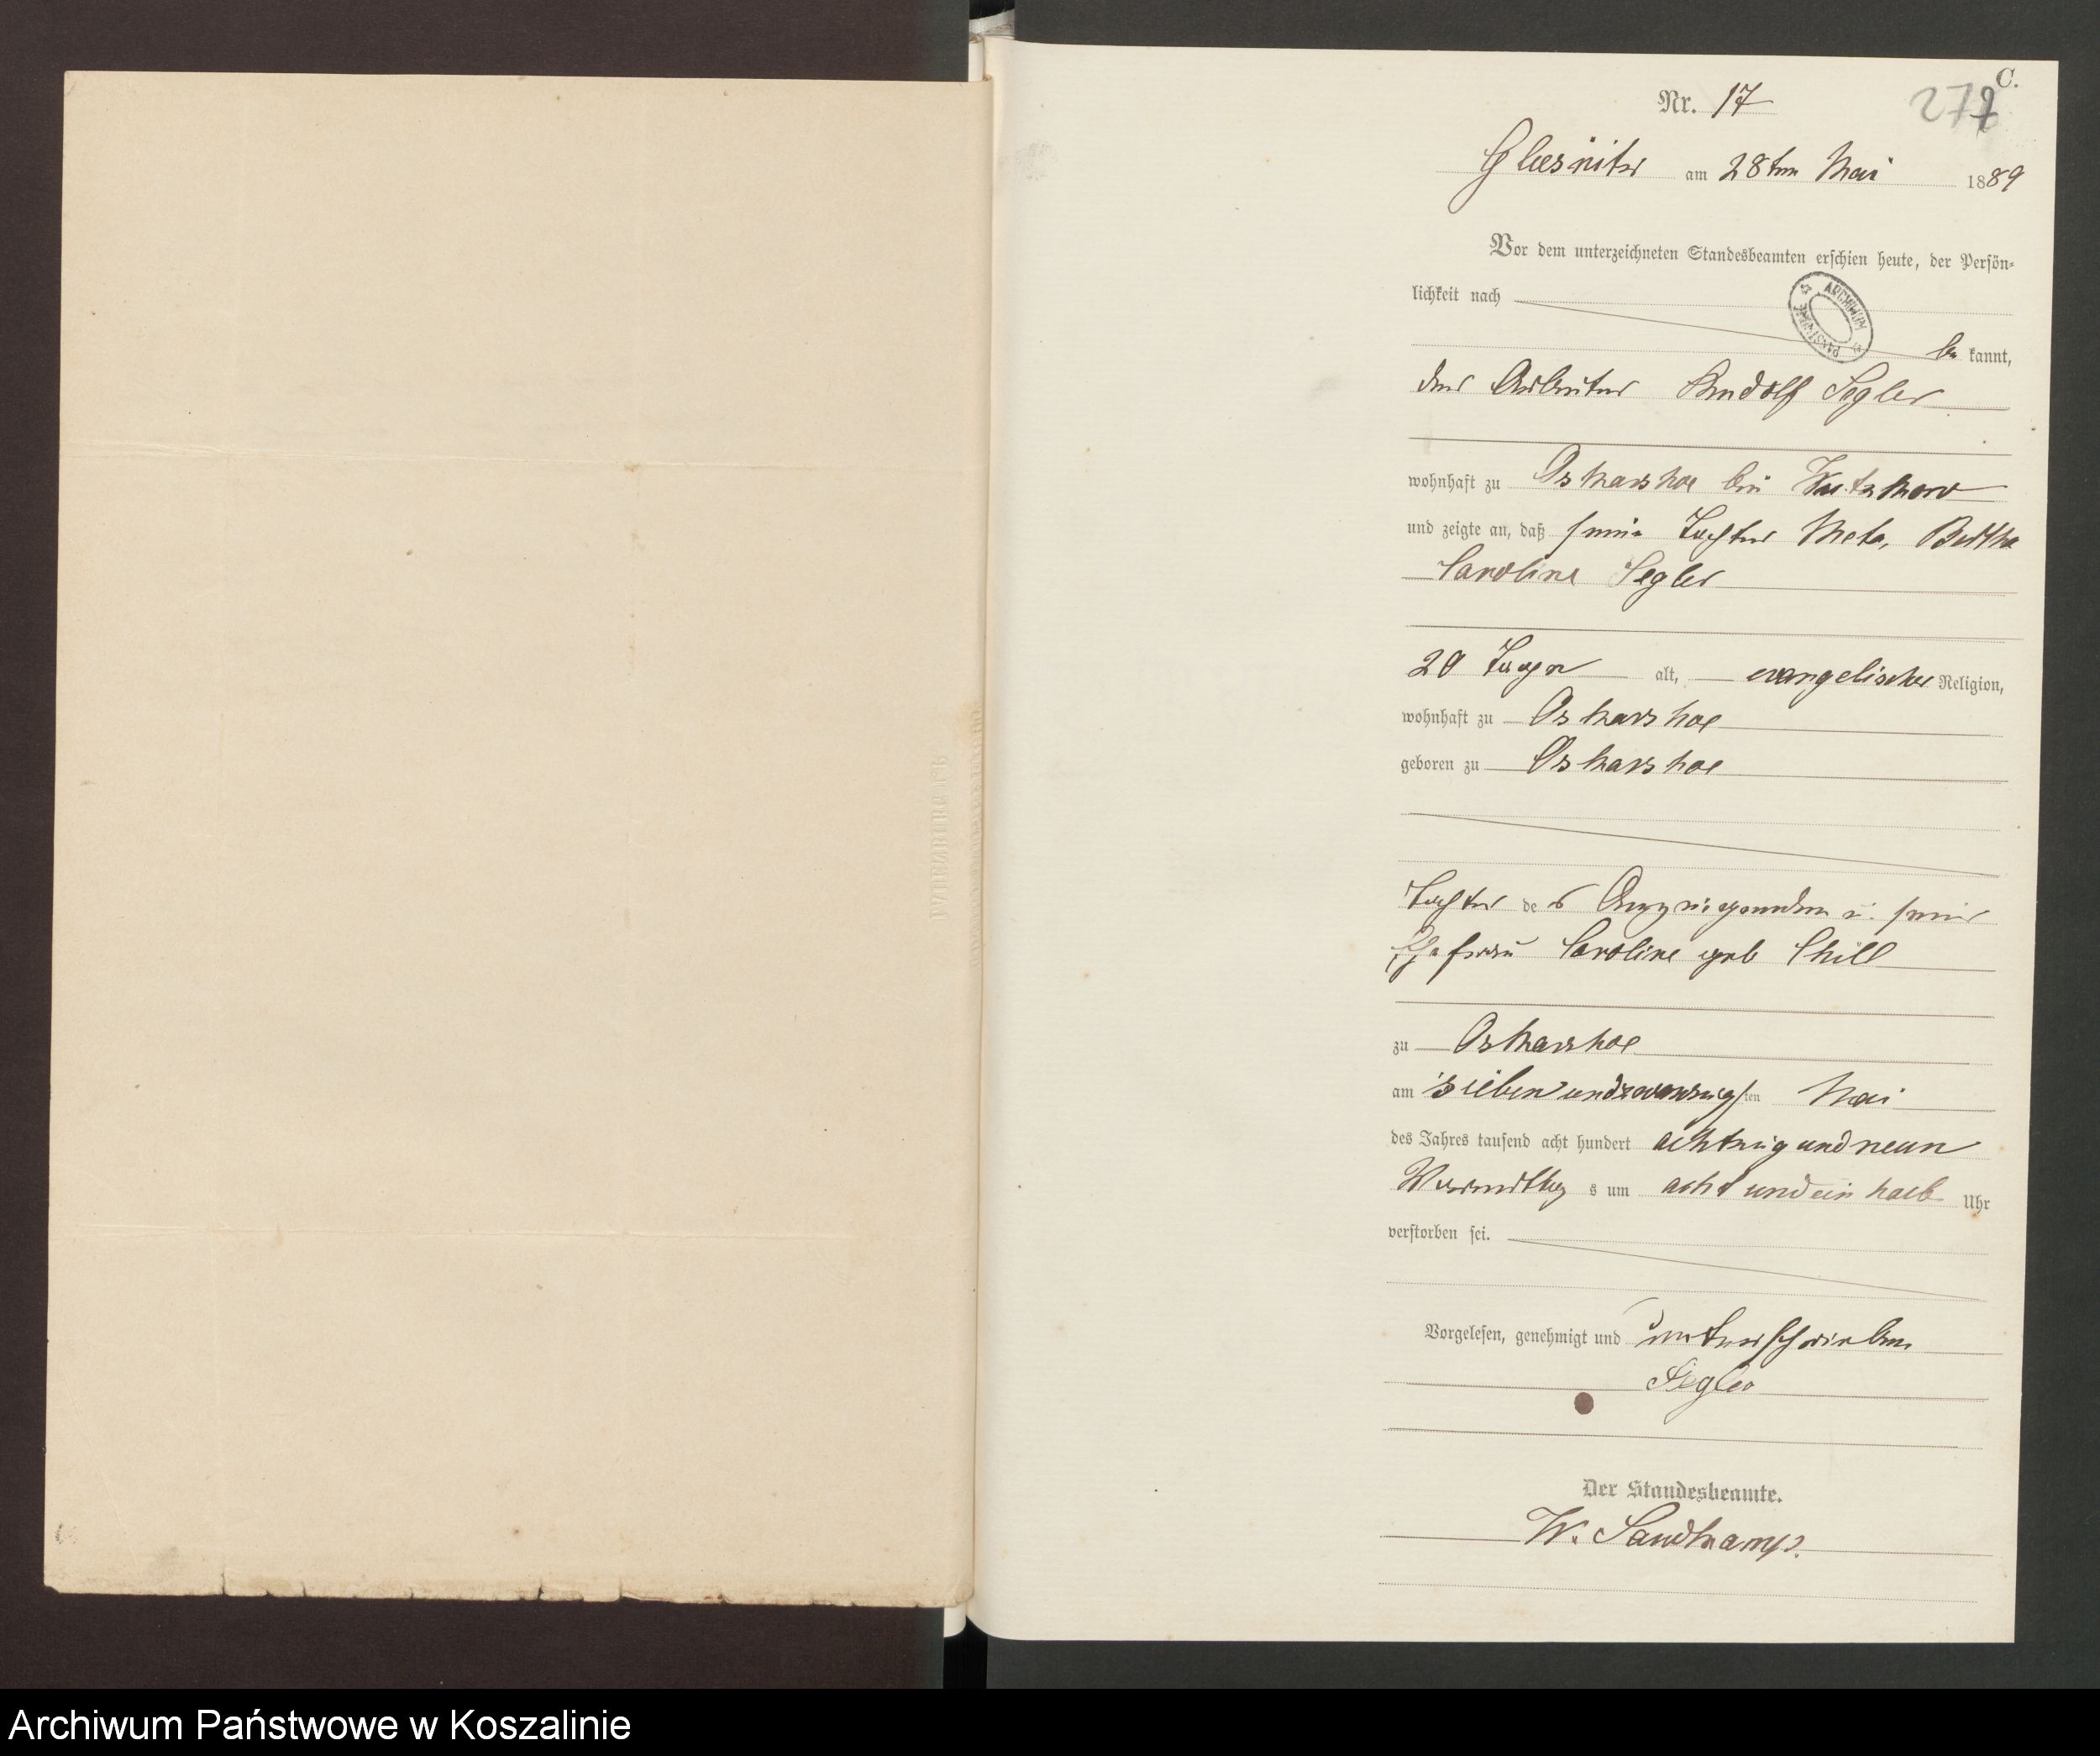 C.
Nr. 17
277
Gloesnitz am 28ten Mai 1889
Vor dem unterzeichneten Standesbeamten erschien heute, der Persön-
lichkeit nach
ARCHIWUM PAŃSTWOWE
be kannt,
der Arbeiter Rudolf Segler
wohnhaft zu Oskarshoe bei
und zeigte an, daß seine Tochter Meta, Bertha
Caroline Segler
20 Tage alt, evangelischer Religion,
wohnhaft zu Oskarshoe
geboren zu Oskarshoe
Tochter des Anzeigenden u. seiner
Ehefrau Caroline geb
zu Oskarshoe
am siebenundzwanzigsten Mai
des Jahres tausend acht hundert achtzig und neun
Vormittags um acht und ein halb Uhr
verstorben sei.
Vorgelesen, genehmigt und unterschrieben
Segler
Der Standesbeamte.
W. Sandkamp.
Archiwum Państwowe w Koszalinie